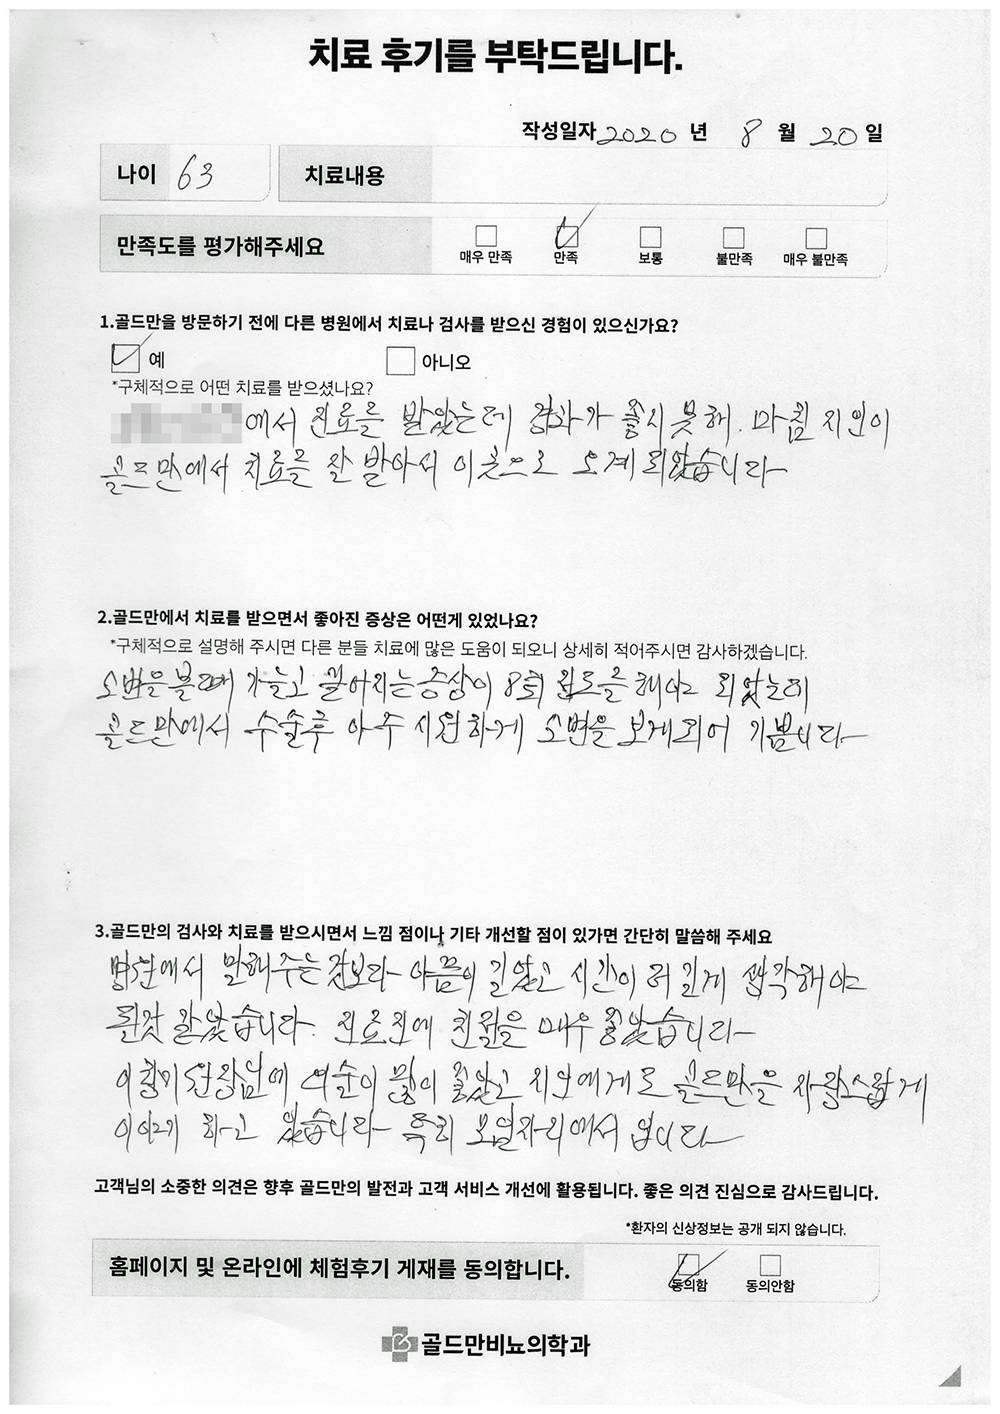 치료 후기를 부탁드립니다.
작성일자 2020 년 8 월 20 일
나이 63 치료내용
만족도를 평가해주세요 매우 만족 만족 보통 불만족 매우 불만족
1.골드만을 방문하기 전에 다른 병원에서 치료나 검사를 받으신 경험이 있으신가요?
예 아니오
*구체적으로 어떤 치료를 받으셨나요?
에서 진료를 받았는데 결과가 좋지 못해. 마침 지인이
골드만에서 치료를 잘 받아서 이곳으로 오게 되었습니다
2.골드만에서 치료를 받으면서 좋아진 증상은 어떤게 있었나요?
*구체적으로 설명해 주시면 다른 분들 치료에 많은 도움이 되오니 상세히 적어주시면 감사하겠습니다.
소변을 볼때 가늘고 끊어지는 증상이 해야 되었는데
골드만에서 수술후 아주 시원하게 소변을 보게되어 기쁩니다
3.골드만의 검사와 치료를 받으시면서 느낌 점이나 기타 개선할 점이 있가면 간단히 말씀해 주세요
병원에서 말해주는 것보다 아픔이 길었고 시간이 더 길게 생각해야
될것 같았습니다. 친절은 매우 좋았습니다
원장님에 많이 좋았고 지인에게도 골드만을 자랑스럽게
이야기 하고 있습니다 특히
고객님의 소중한 의견은 향후 골드만의 발전과 고객 서비스 개선에 활용됩니다. 좋은 의견 진심으로 감사드립니다.
*환자의 신상정보는 공개 되지 않습니다.
홈페이지 및 온라인에 체험후기 게재를 동의합니다. 동의함 동의안함
골드만비뇨의학과